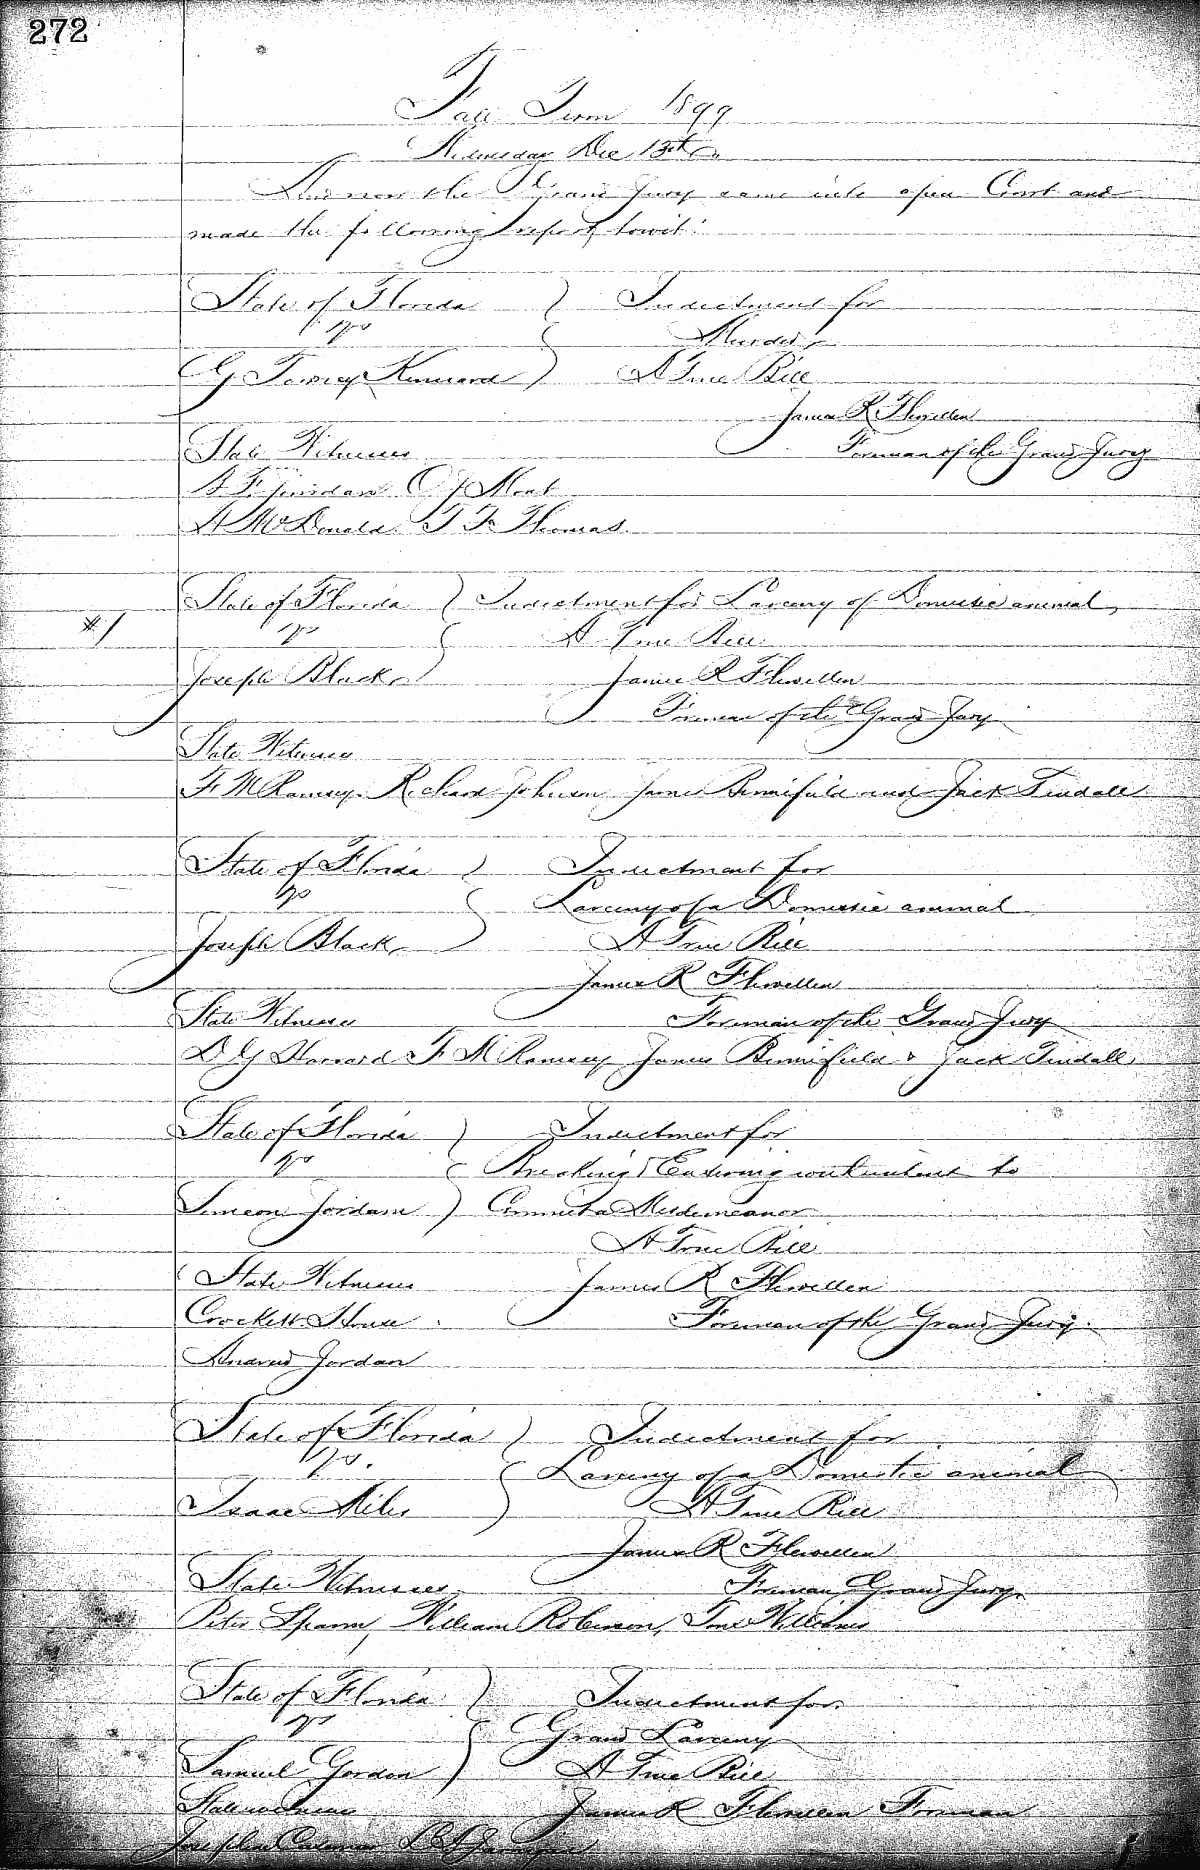 272
Fall Term 1899
Wednesday Dec 13th
And now the Grand Jury came into open Court and
made the following report towit:
State of Florida Indictment for
vs Murder
G Kinnard A True Bill
James R Flewellen
State Witnesses Foreman of the Grand Jury
A McDonald. T F Thomas.
State of Florida Indictment for Larceny of Domestic animal,
#1 vs A True Bill.
Joseph Black James R Flewellen
Foreman of the Grand Jury
State Witnesses
F M Ramsey. Richard Johnson James Bennifield and Jack Tindall
State of Florida Indictment for
vs Larceny of a Domestic animal
Joseph Black A True Bill
James R Flewellen
State Witnesses Foreman of the Grand Jury
D G Howard F M Ramsey James Bennifield & Jack Tindall
State of Florida Indictment for
vs Breaking & Entering with intent to
Simeon Jordan Commit a Misdemeanor
A True Bill
State Witnesses James R Flewellen
Crockett House Foreman of the Grand Jury.
Andrew Jordan
State of Florida Indictment for
vs. Larceny of a Domestic animal
Isaac Miles A True Bill
James R Flewellen
State Witnesses Foreman Grand Jury
Peter Spann, William Robinson, Williams
State of Florida Indictment for
vs Grand Larceny
Samuel Gordon A True Bill
State witness James R Flewellen Foreman
Joseph